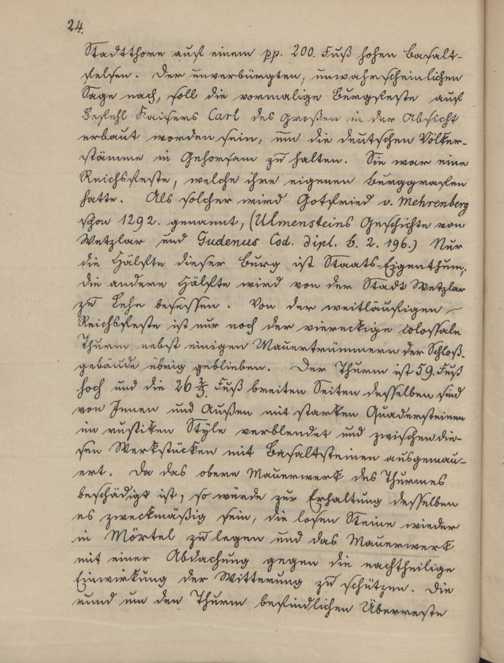 24.
Stadtthore auf einem pp. 200. Fuß hohen Basalt-
felsen. Der unverbürgten, unwahrscheinlichen
Sage nach, soll die vormalige Burgfeste auf
Befehl Kaisers Carl des Großen in der Absicht
erbaut worden sein, um die deutschen Völker-
stämme in Gehorsam zu halten. Sie war eine
Reichsfeste, welche ihre eigenen Burggrafen
hatte. Als solcher wird Gottfried v. Mehrenberg
schon 1292. genannt, (Ulmensteins Geschichte von
Wetzlar und Gudenus Cod. dipl. b. 2. 196.) Nur
die Hälfte dieser Burg ist Staats-Eigenthum,
die andere Hälfte wird von der Stadt Wetzlar
zu Lehn besessen. Von der weitläufigen
Reichsfeste ist nur noch der viereckige colossale
Thurm nebst einigen Mauertrümmern der Schloß-
gebäude übrig geblieben. Der Thurm ist 59. Fuß
hoch und die 26 Fuß breiten Seiten desselben sind
von Innen und Außen mit starken Quadersteinen
im rustiken Style verblendet und zwischen die-
sen Werkstücken mit Basaltsteinen ausgemau-
ert. Da das obere Mauerwerk des Thurmes
beschädigt ist, so würde zur Erhaltung desselben
es zweckmäßig sein, die losen Steine wieder
in Mörtel zu legen und das Mauerwerk
mit einer Abdachung gegen die nachtheilige
Einwirkung der Witterung zu schützen. Die
rund um den Thurm befindlichen Überreste